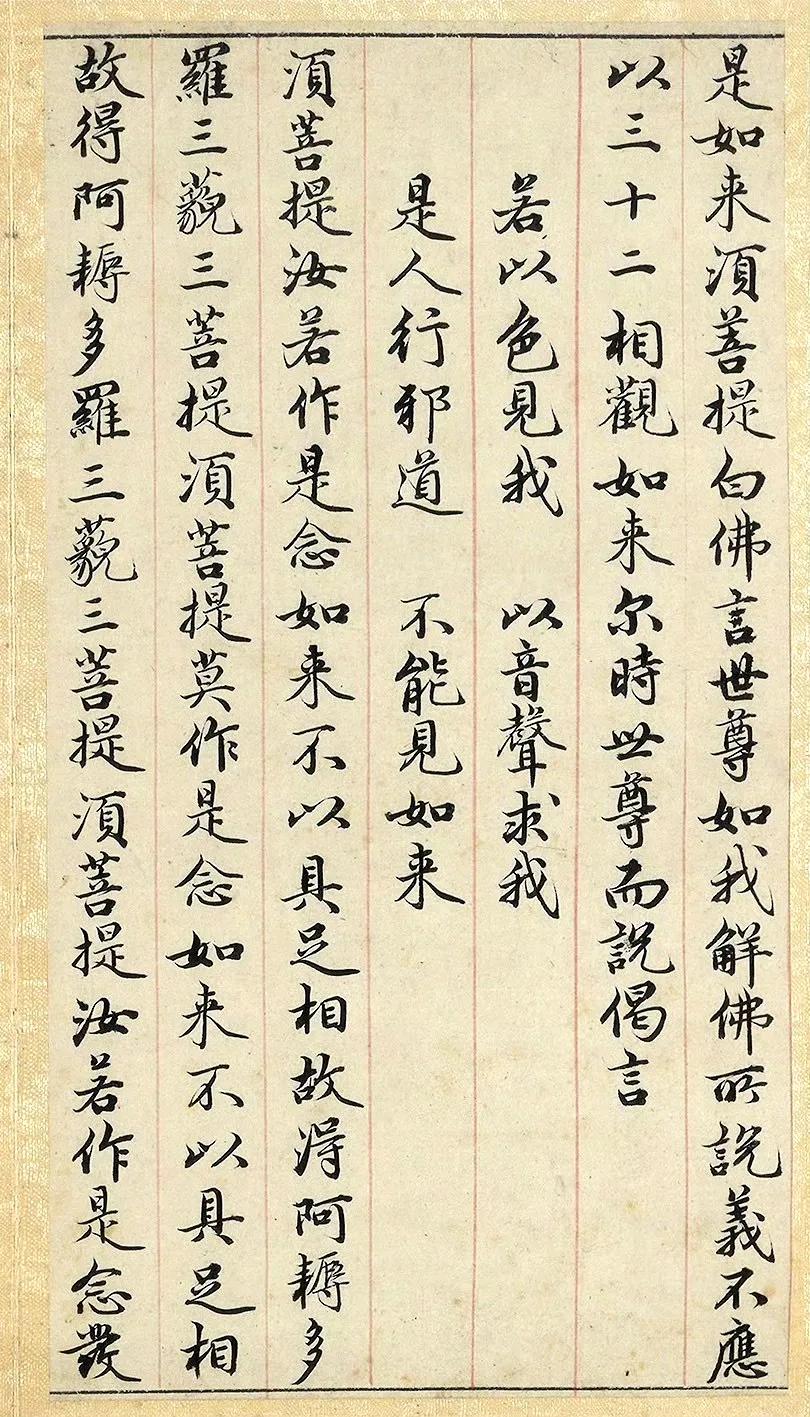 是如来須菩提白佛言世尊如我解佛所說義不應
以三十二相觀如来尔時世尊而說偈言
若以色見我　以音聲求我
是人行邪道　不能見如来
須菩提汝若作是念如来不以具足相故得阿耨多
羅三藐三菩提須菩提莫作是念如来不以具足相
故得阿耨多羅三藐三菩提須菩提汝若作是念發